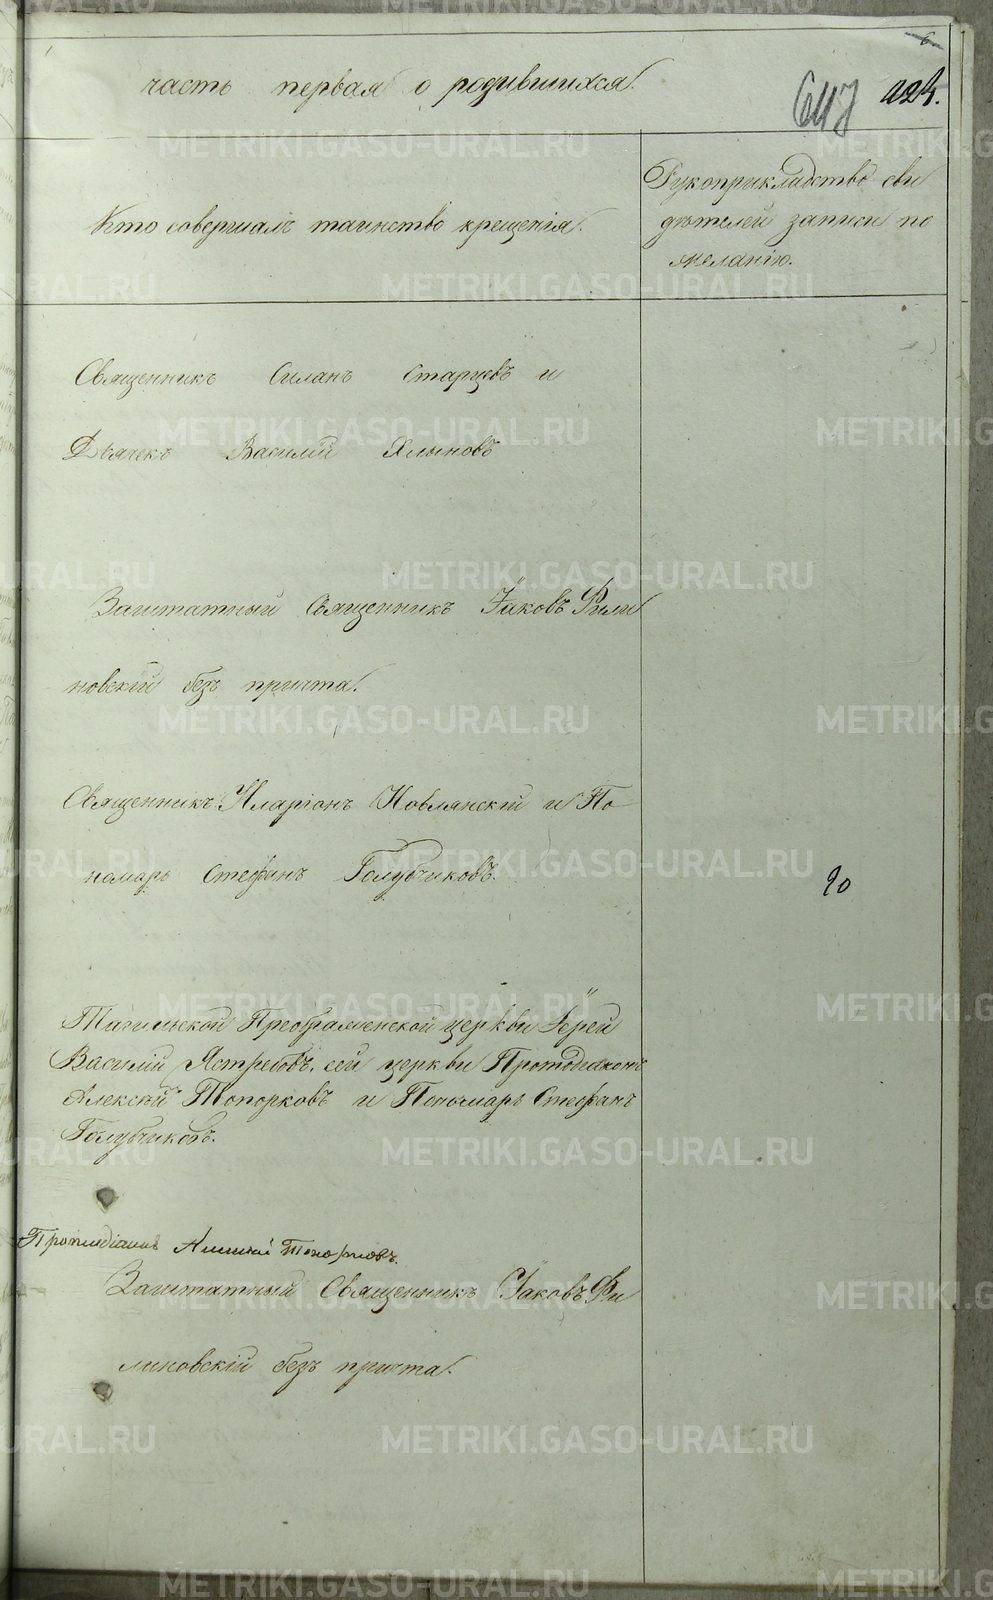 6
часть первая о родившихся.
Кто совершалъ таинство крещенія.
Рукоприкладство сви
дѣтелей записи по
желанію.
Священникъ Силанъ Старцевъ и
Дьячекъ Василій Хлыновъ
Заштатный Священникъ Іаковъ Фили
новскій безъ причта.
Священникъ Иларіонъ Новлянскій и По
номарь Стефанъ Голубчиковъ.
90
Тагильской Преображенской церкви Іерей
Василій Ястребовъ, сей церкви Протодіаконъ
Алексѣй Топорковъ и Пономарь Стефанъ
Голубчиковъ.
Протодіаконъ Алексѣй Топорковъ.
Заштатный Священникъ Іаковъ Фи
линовскій безъ причта.
METRIKI.GASO-URAL.RU